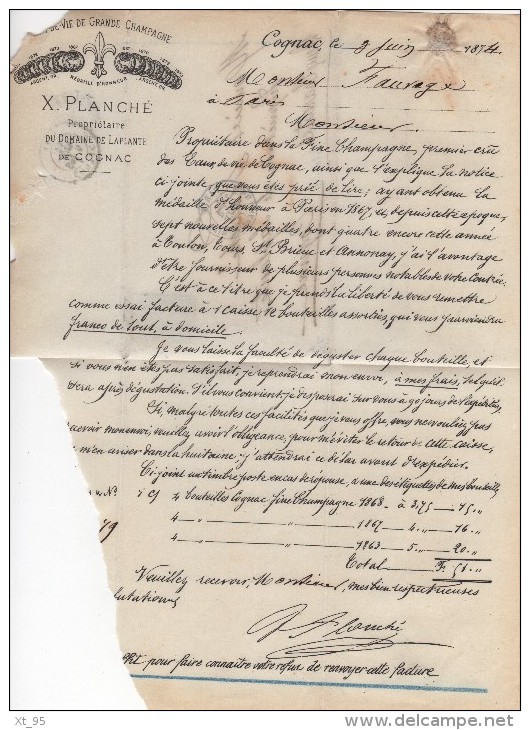 DE-VIE DE GRANDE CHAMPAGNE
MEDAILLE D'HONNEUR
X. PLANCHÉ
Propriétaire
DU DOMAINE DE LAPLANTE
DE COGNAC
Cognac, le 3 Juin 1874
Monsieur Fauvage
à Paris
Monsieur
Propriétaire dans la Fine Champagne, premier crû
des Eaux de vie de Cognac, ainsi que l'explique la notice
ci jointe, que vous êtes prié de lire; ayant obtenu la
médaille d'honneur à Paris en 1867, et, depuis cette époque,
sept nouvelles médailles, dont quatre encore cette année
à Toulon, Tours, St Brieuc et Annonay, j'ai l'avantage
d'être fournisseur de plusieurs personnes notables de votre Contrée.
C'est à ce titre que je prends la liberté de vous remettre
comme essai facture à 1 Caisse 12 bouteilles assorties, qui vous parviendra
franco de tout, à domicile.
Je vous laisse la faculté de déguster chaque bouteille, et
si vous n'en êtes pas satisfait, je reprendrai mon envoi, à mes frais, tel qu'il
sera après dégustation. S'il vous convient je disposerai sur vous à 90 jours de l'expédition,
Si, malgré toutes ces facilités que je vous offre, vous ne vouliez pas
recevoir mon envoi, veuillez avoir l'obligeance, pour m'éviter le retour de cette caisse,
m'en aviser dans la huitaine: j'attendrai ce délai avant d'expédier.
Ci joint un timbre poste en cas de réponse, avec des étiquettes de mes bouteilles
No 1 Cs 4 bouteilles Cognac fine Champagne 1868 à 3,75 15 "
79 4 " " 1867 4 " 16 "
4 " " 1863 5 " 20 "
Total F. 51 "
Veuillez recevoir, Monsieur, mes bien respectueuses
lutations
X Planché
pour faire connaître votre refus de renvoyer cette facture
Xt_95
www.delcampe.net